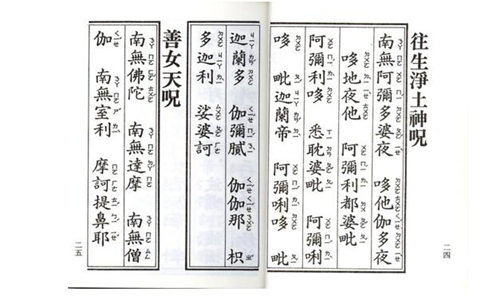 往生淨土神呪
南無阿彌多婆夜 哆他伽多夜
哆地夜他 阿彌利都婆毗
阿彌利哆 悉耽婆毗 阿彌唎
哆 毗迦蘭帝 阿彌唎哆 毗
二四
迦蘭多 伽彌膩 伽伽那 枳
多迦利 娑婆訶
善女天呪
南無佛陀 南無達摩 南無僧
伽 南無室利 摩訶提鼻耶
二五